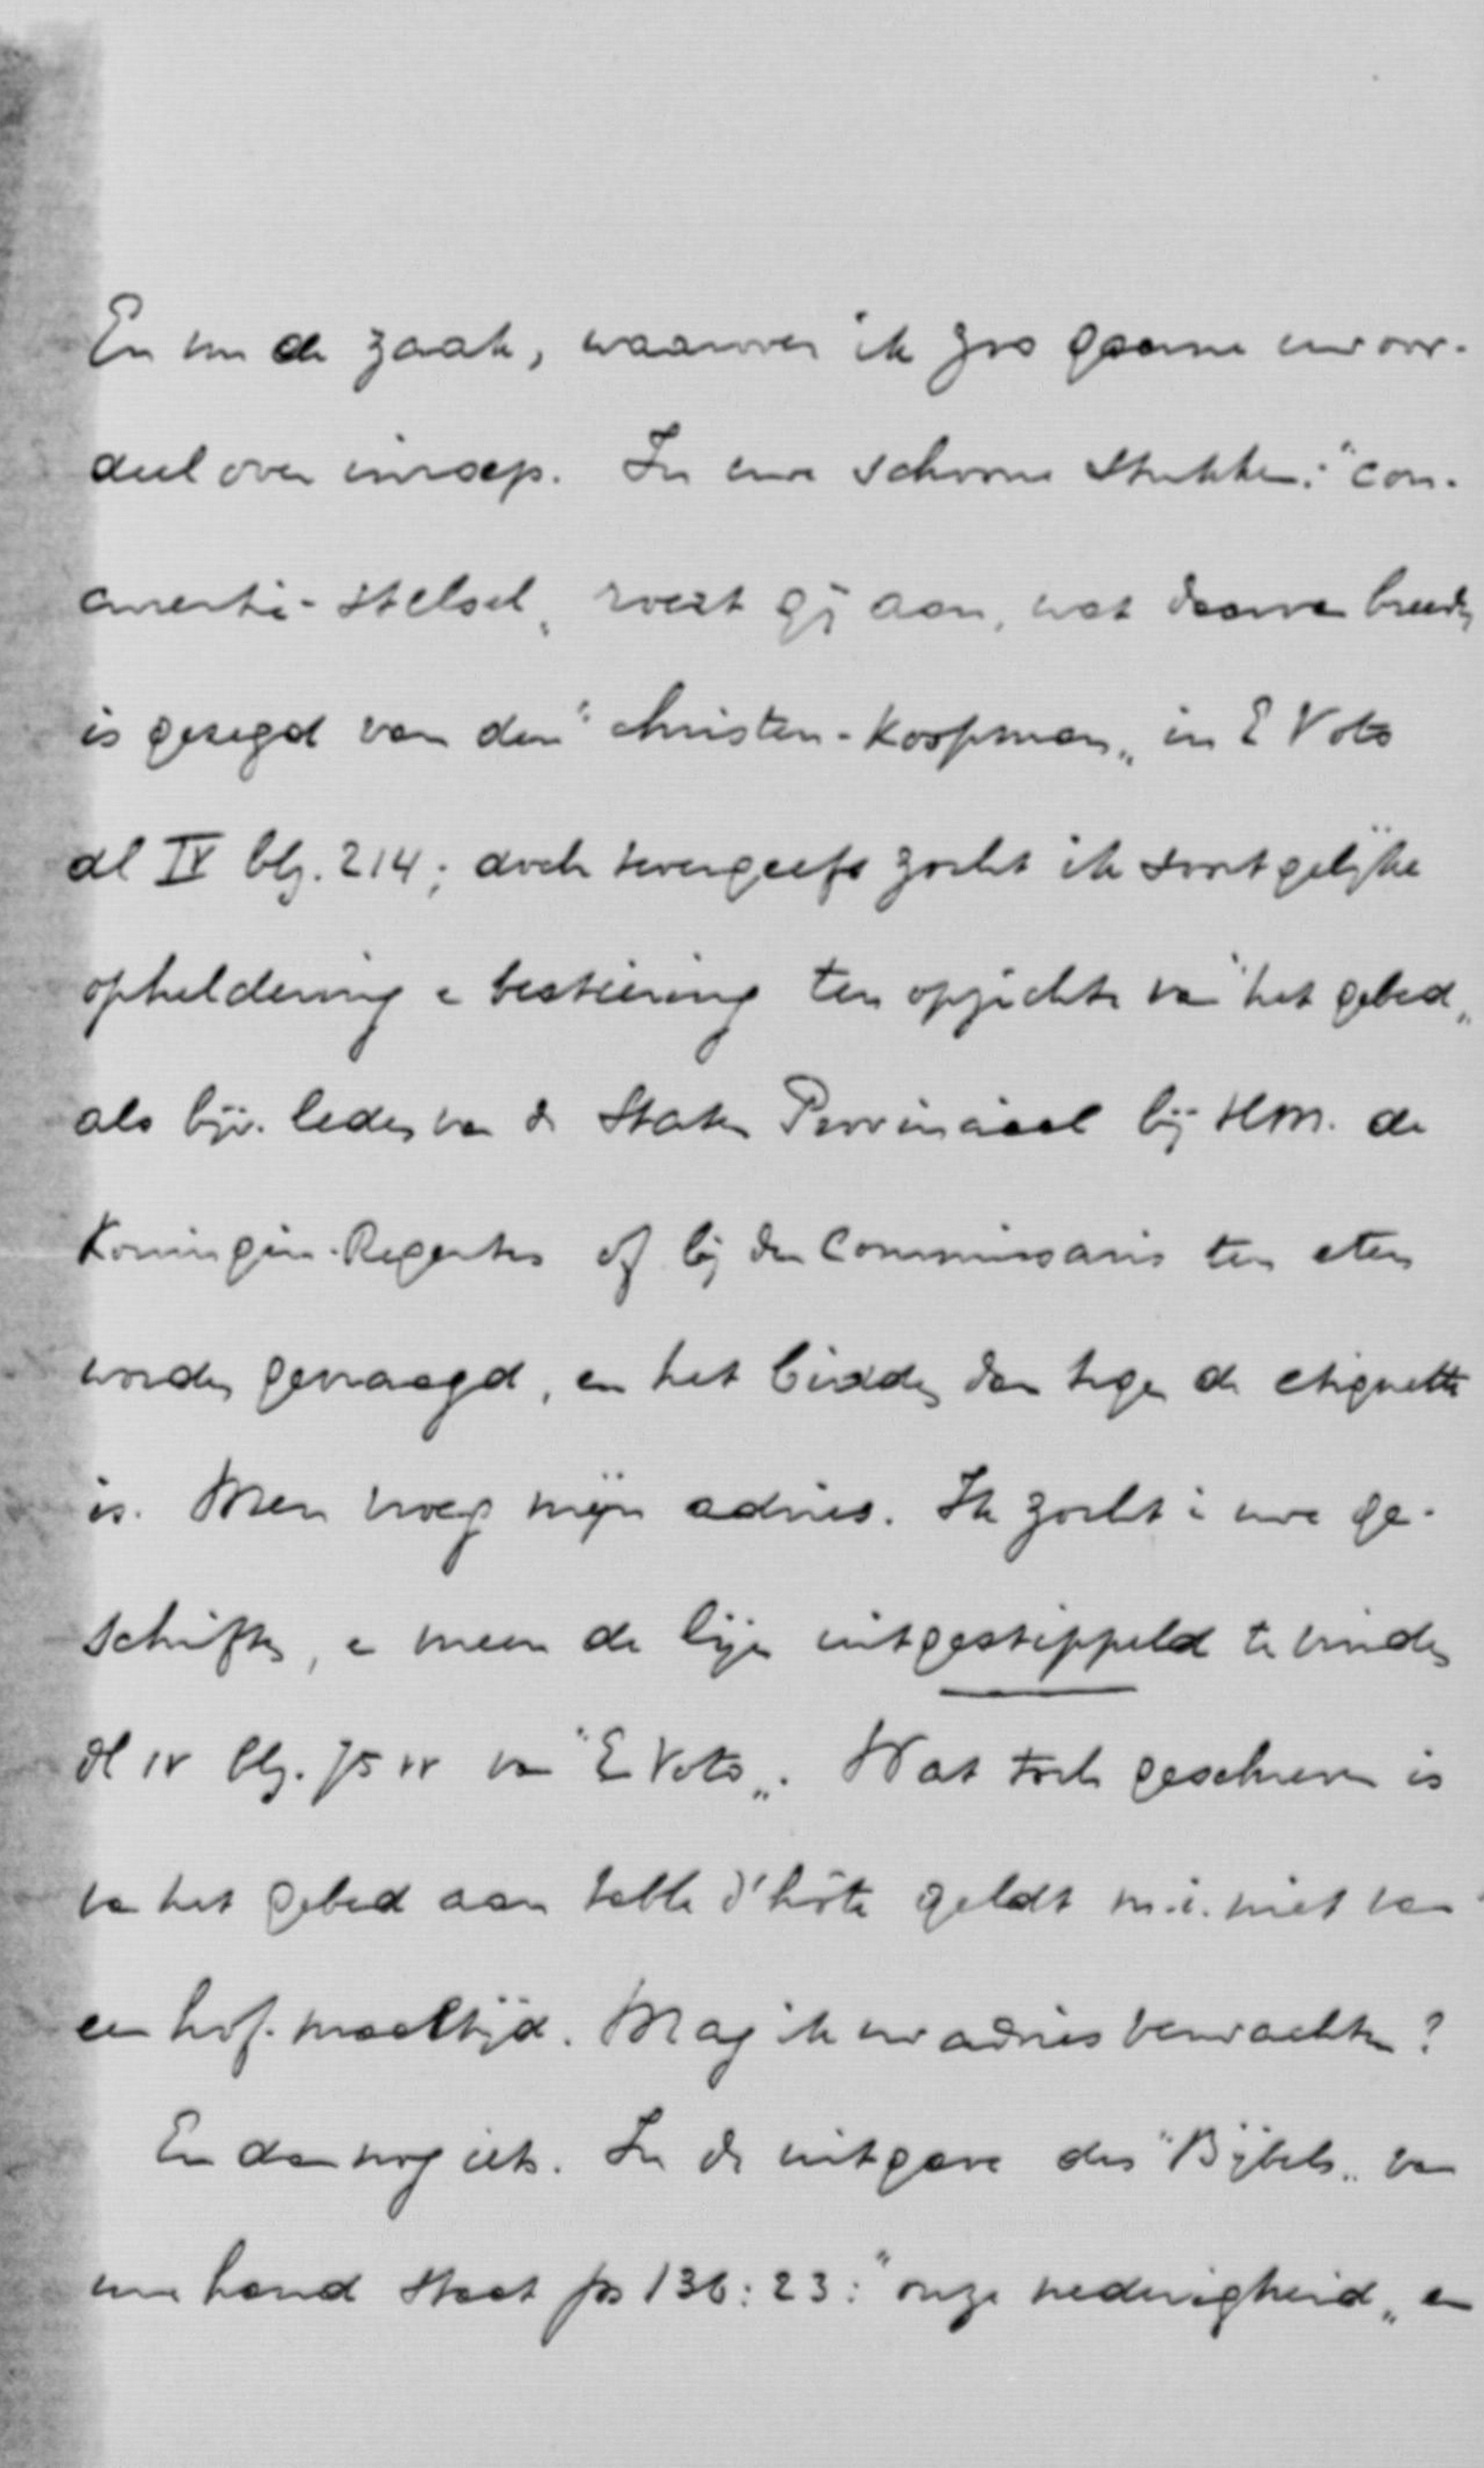 En nu de zaak, waarover ik zoo gaarne uw oor-
deel over inroep. In uwe schoone stukken: "con-
currentie-stelsel„ roert gij aan, wat daarvan breeder
is gezegd van den "christen-koopman„ in E Voto
dl IV blz. 214; doch tevergeefs zocht ik soortgelijke
opheldering en bestiering ten opzichte van "het gebed„
als bijv. leden van de Staten Provinciaal bij H.M. de
Koningin-Regentes of bij den Commissaris ten eten
worden gevraagd, en het bidden dan tegen de etiquette
is. Men vroeg mijn advies. Ik zocht in uwe ge-
schriften, en meen de lijn uitgestippeld te vinden
dl IV blz. 75 vv van "E Voto„. Wat toch geschreven is
van het gebed aan table d'hôte geldt m.i. niet van
een hof-maaltijd. Mag ik uw advies verwachten?
En dan nog iets. In de uitgave des "Bijbels„ van
uwe hand staat ps 136:23: "onze nederigheid„ en